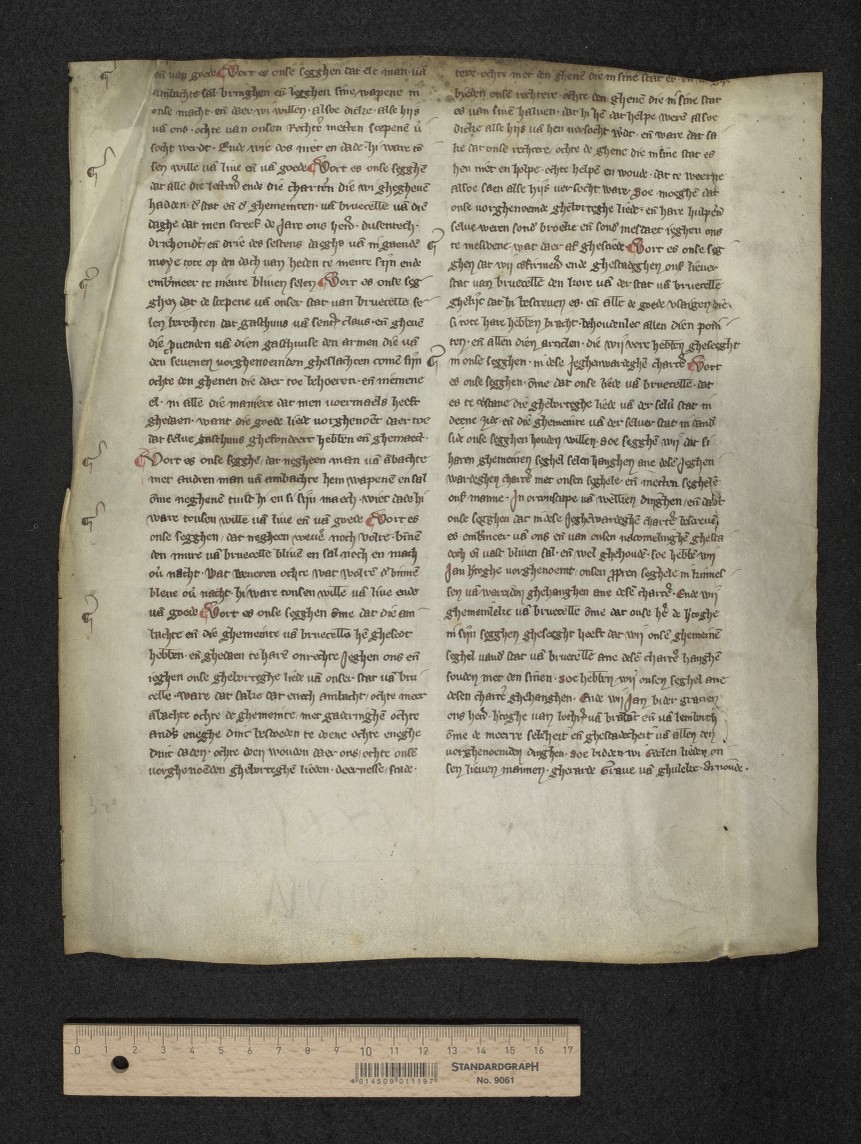 en̄ van goede Vort es onse segghen dat elc man vā
ambachte sal bringhen en̄ legghen sine wapene in
onse macht en̄ daer wi willen · alsoe dicke · alse hijs
vā ons · ochte van onsen rechtr̄ metten scepenē v̄
socht werdt · Ende wie des niet en dade · hi ware tō
sen wille vā live en̄ vā goede Vort es onse segghē
dat alle die letterē ende die charten die wi ghegheuē
hadden d̄ stat en̄ d̄ ghemeinten · vā bruecelle vā die
daghe dat men screef de Jare ons herē · dusentech ·
drihondt en̄ drie des sesdens daeghs vā in gaende
meye tote op den dach van heden te niente sijn ende
emb̄meer te niente bliuen selen Vort es onse seg
ghen dat de scepene vā onser stat van bruecelle se
len berechten dat gasthuus vā sente claus · en̄ gheuē
die p̄uenden vā dien gasthuuse den armen die vā
den seuenen vorghenoemden gheslachten comē sijn
ochte den ghenen die daer toe behoeren · en̄ niemene
el · in alle die maniere dat men voermaels heeft
ghedaen · want die goede liede vorghenoēt daer toe
dat selue gasthuus ghefondeert hebben en̄ ghemaect ·
Vort es onse segghē · dat negheen man vā ābachte
met andren man vā ambachte hem wapenē en sal
ōme neghenē tuist hi en si sijn maech · wiet dade hi
ware tonsen wille vā liue en̄ vā goede Vort es
onse segghen · dat negheen weuē noch volre · binē
den mure vā bruecelle bliuē en sal noch en mach
ou̇ nacht · Wat weueren ochte wat volre d̄ binnē
bleue ou̇ nacht · hi ware tonsen wille vā liue ende
vā goede Vort es onse segghen ōme dat die am
bachte en̄ die ghemeinte vā bruecelle hē gheset
hebbē · en̄ ghedaen te harē onrechte Jeghen ons en̄
ieghen onse ghebortteghe liede vā onser stat vā bru
celle · ware dat sake dat enech ambacht · ochte meer
ābachte ochte de ghemeinte · met gaderinghē ochte
and̄s eneghe dinc bestoeden te doene ochte eneghe
dinc daden · ochte doen wouden daer ons · ochte onse
vorghenoēden ghebortteghē lieden · deernesse · scade ·
tere · ochte met den ghenē die in sine stat es
bieden onse rechtere · ochte den ghenē die in sine stat
es van sinē haluen · dat hi hē dat helpe werē alsoe
dicke alse hijs vā hen versocht w̄dt · en̄ ware dat sa
ke dat onse rechtere · ochte de ghene die in sine stat es
hen niet en holpe · ochte helpē en woude · dat te weerne
alsoe saen alse hijs versocht ware · Soe moeghē dat
onse vorghenoemde ghebortteghe liede · en̄ hare hulpen
selue weren sond̄ broeke en̄ sond̄ mesdaet ieghen ons
te mesdoene · wat daer af ghesciede Vort es onse seg
ghen dat wij cōfirmerē ende ghestadeghen onse lieuer
stat van bruecelle den kore vā der stat vā bruecelle
ghelijc dat hi bescreuen es · en̄ alle de goede vsaigen die
si tote hare hebben bracht · behoudenlec allen dien poīn
ten · en̄ allen dien articlen · die wij vore hebben ghesegght
in onse segghen · in dese Jeghenwardeghē chartr̄ Vort
es onse segghen · ōme dat onse liede vā bruecelle · dat
es te vstane die ghebortteghe liede vā der selū stat in
deene zide · en̄ die ghemeinte vā der seluer stat in dand̄
side onse segghen houden willen · soe segghē wij dat si
haren ghemeinen seghel selen hanghen ane dese Jeghen
wardeghen chartr̄ met onsen seghele · en̄ metten seghelē
onser manne · In orconscape vā wellken dinghen · en̄ dat
onse segghen dat in dese Jeghēwardeghē chartr̄ bescreuē
es emb̄meer vā ons en̄ van onsen nacomelinghē ghesta
dech en̄ vast bliuen sal · en̄ wel ghehoudē · soe hebbē wij
Jan hertoghe vorghenoemt · onsen pp̄ren seghele in kinnes
sen vā warheiden ghehanghen ane dese chartr̄ · Ende wij
ghemeinleke vā bruecelle ōme dat onse hē de hertoghe
in sijn segghen ghesegght heeft dat wij onsē ghemeinē
seghel vand̄ stat vā bruecelle ane dese chartr̄ hanghē
souden met den sinen · Soe hebben wij onsen seghel ane
desen chartr̄ ghehanghen · Ende wij Jan bider gratien
ons herē hertoghe van lothr̄ vā brabāt en̄ vā lemborch
ōme de meerre sekerheit en̄ ghestadecheit vā allen den
vorghenoemden dinghen · soe bidden wi Edelen lieden on
sen lieuen mannen · gherarde Graue vā ghuleke · Arnoude ·